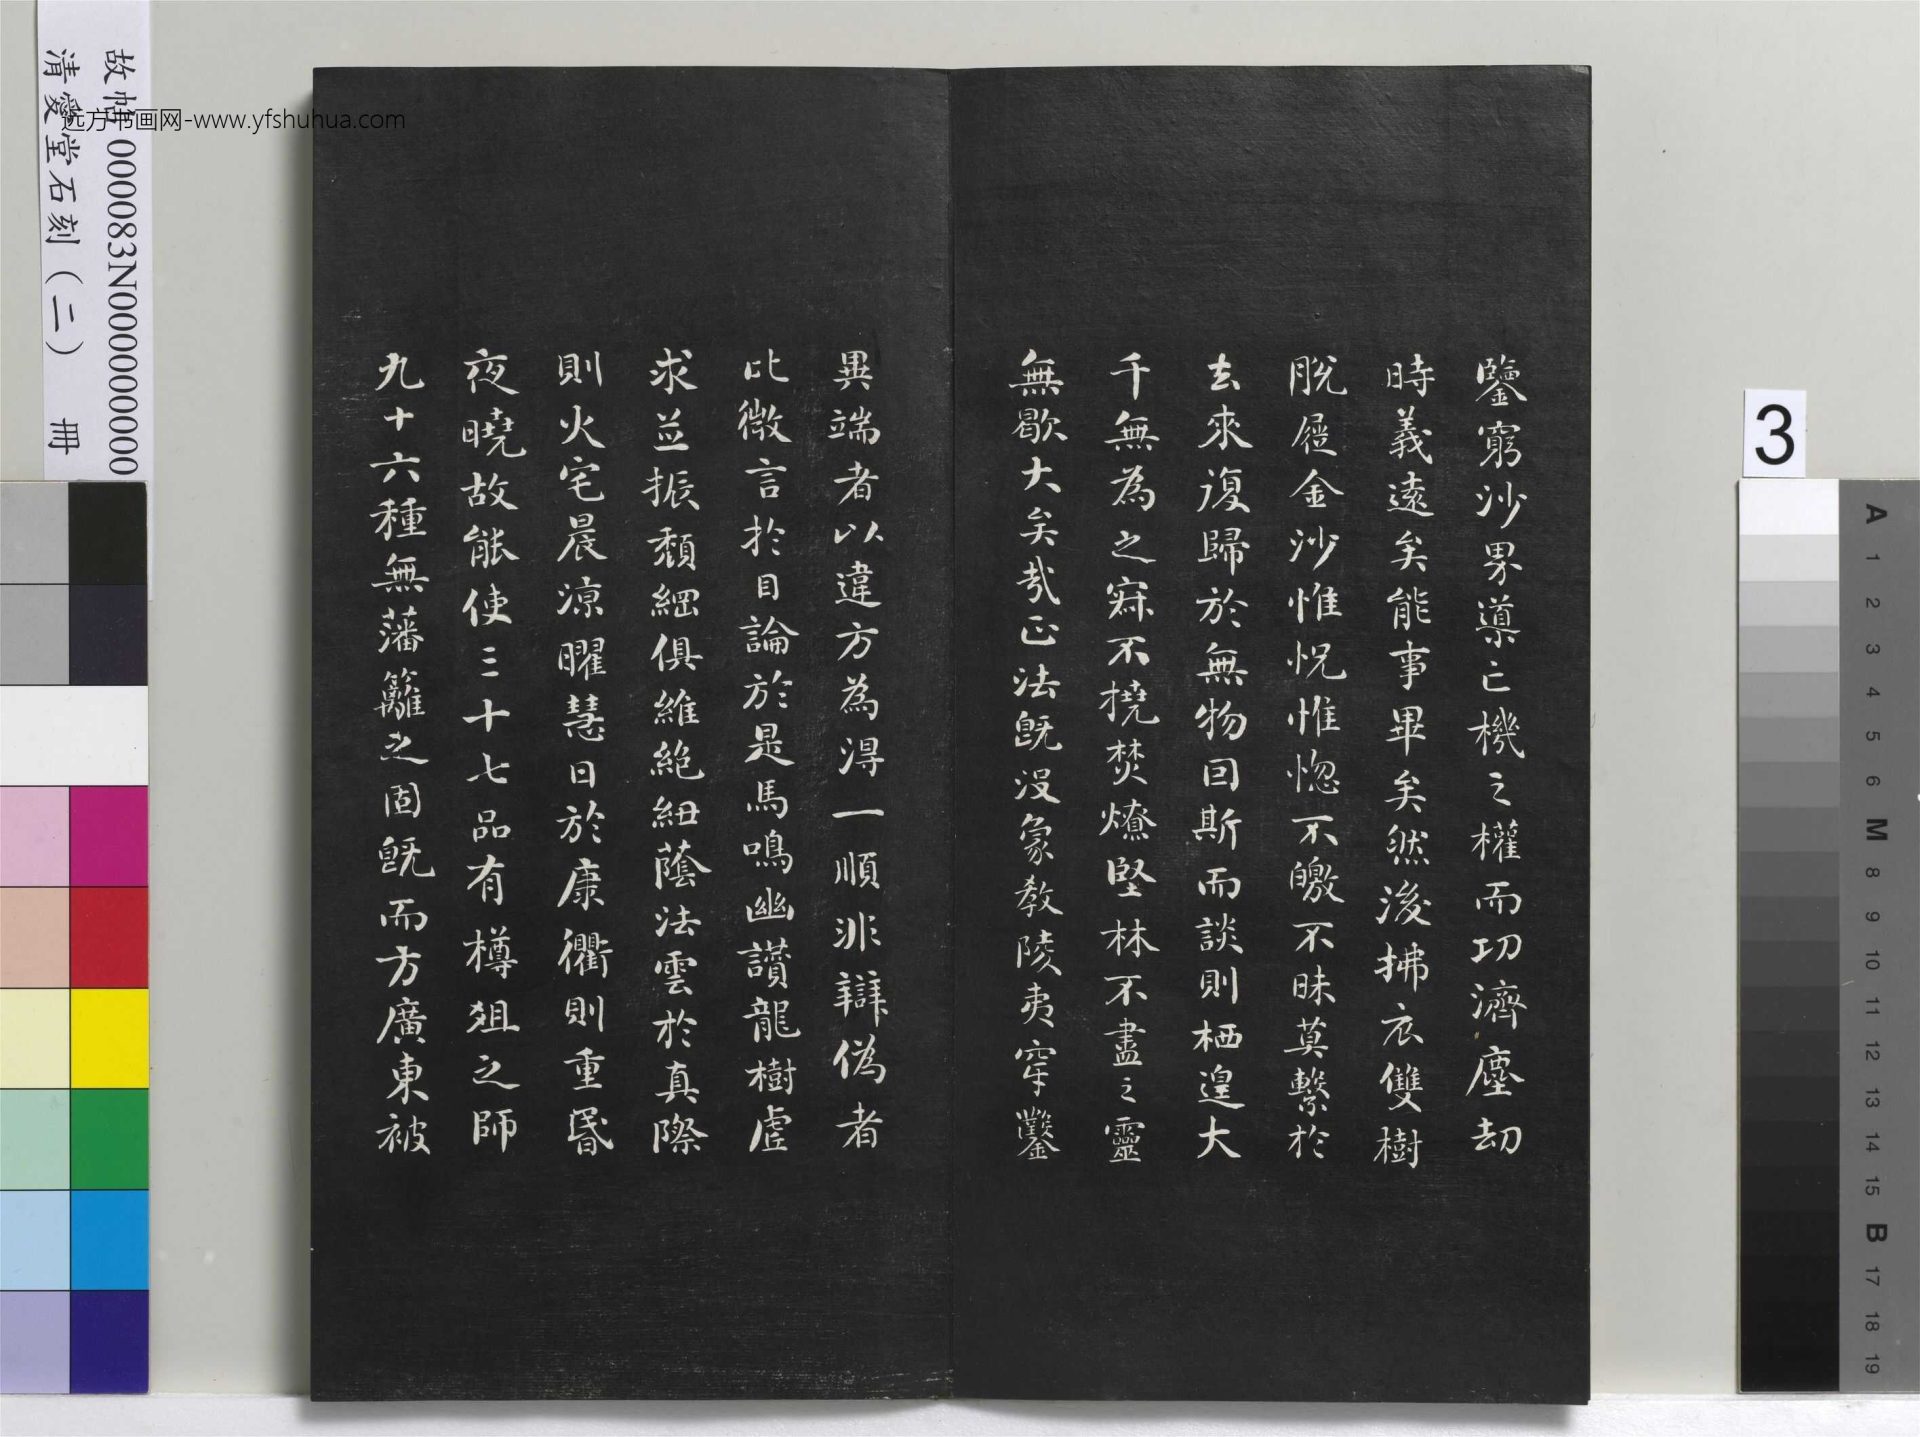 鑒窮沙界導亡機之權而功濟塵劫
時義遠矣能事畢矣然後拂衣雙樹
脫屣金沙惟怳惟惚不皦不昧莫繫於
去來復歸於無物因斯而談則栖遑大
千無為之寂不撓焚燎堅林不盡之靈
無歇大矣哉正法既沒象教陵夷穿鑿
異端者以違方為得一順非辯偽者
比微言於目論於是馬鳴幽讚龍樹虛
求並振頹綱俱維絕紐蔭法雲於真際
則火宅晨涼曜慧日於康衢則重昏
夜曉故能使三十七品有樽俎之師
九十六種無藩籬之固既而方廣東被
故帖 000083N000000000
清愛堂石刻（二） 冊
远方书画网-www.yfshuhua.com
3
A
1
2
3
4
5
6
M
8
9
10
11
12
13
14
15
B
17
18
19